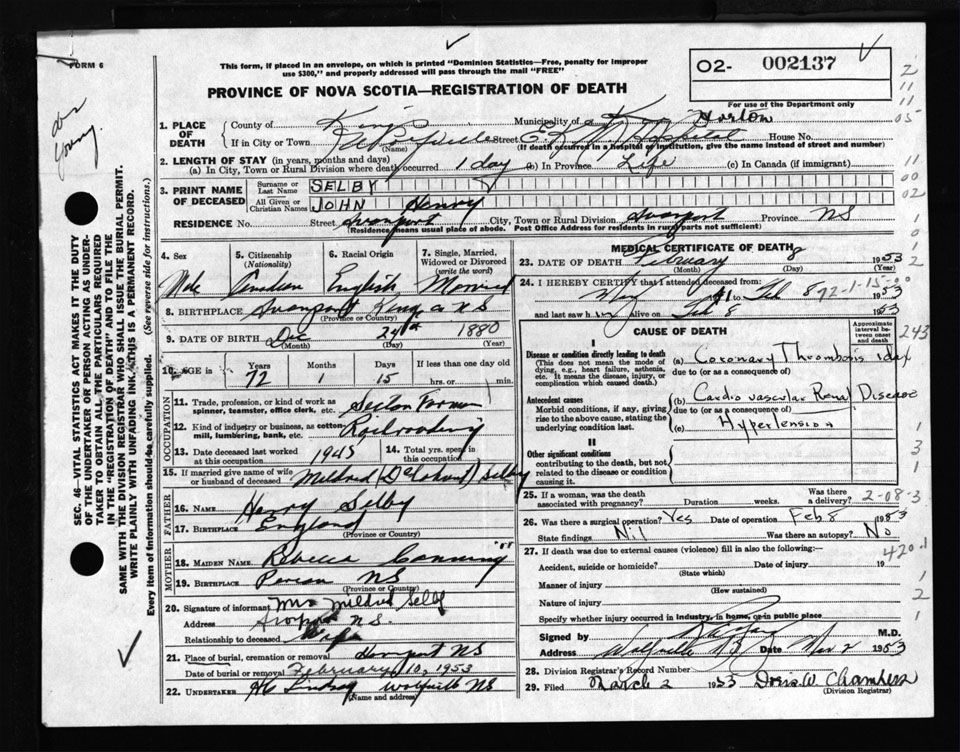 FORM 6
This form, if placed in an envelope, on which is printed "Dominion Statistics—Free, penalty for improper
use $300," and properly addressed will pass through the mail "FREE"
PROVINCE OF NOVA SCOTIA—REGISTRATION OF DEATH
O2- 002137
For use of the Department only
1. PLACE OF DEATH
County of Kings Municipality of Horton
If in City or Town Wolfville (Name) Street E.K.M. Hospital House No.
(If death occurred in a hospital or institution, give the name instead of street and number)
2. LENGTH OF STAY (in years, months and days)
(a) In City, Town or Rural Division where death occurred 1 day (b) In Province Life (c) In Canada (if immigrant)
3. PRINT NAME OF DECEASED
Surname or Last Name SELBY
All Given or Christian Names JOHN Henry
RESIDENCE No. Street Avonport City, Town or Rural Division Avonport Province NS
(Residence means usual place of abode. Post Office Address for residents in rural parts not sufficient)
4. Sex Male
5. Citizenship (Nationality) Canadian
6. Racial Origin English
7. Single, Married, Widowed or Divorced (write the word) Married
8. BIRTHPLACE Avonport Kings NS
(Province or Country)
9. DATE OF BIRTH Dec 24th 1880
(Month) (Day) (Year)
10. AGE in Years 72 Months 1 Days 15 If less than one day old hrs. or min.
OCCUPATION
11. Trade, profession or kind of work as spinner, teamster, office clerk, etc. Section Foreman
12. Kind of industry or business, as cotton mill, lumbering, bank, etc. Railroading
13. Date deceased last worked at this occupation 1945
14. Total yrs. spent in this occupation
15. If married give name of wife or husband of deceased Mildred Selby
FATHER
16. Name Harry Selby
17. Birthplace England
(Province or Country)
MOTHER
18. MAIDEN NAME Rebecca Canning
19. BIRTHPLACE NS
(Province or Country)
20. Signature of informant Mrs Mildred Selby
Address Avonport N.S.
Relationship to deceased Wife
21. Place of burial, cremation or removal Avonport NS
Date of burial or removal February 10, 1953
22. UNDERTAKER Lindsay Wolfville NS
(Name and address)
MEDICAL CERTIFICATE OF DEATH
23. DATE OF DEATH February 8 1953
(Month) (Day) (Year)
24. I HEREBY CERTIFY that I attended deceased from:
to Feb 8 1953
and last saw him alive on Feb 8 1953
72-1-15
CAUSE OF DEATH
Approximate interval between onset and death
243
I
Disease or condition directly leading to death
(This does not mean the mode of dying, e.g., heart failure, asthenia, etc. It means the disease, injury, or complication which caused death.)
(a) Coronary Thrombosis 1 day
due to (or as a consequence of)
Antecedent causes
Morbid conditions, if any, giving rise to the above cause, stating the underlying condition last.
(b) Cardio vascular Renal Disease
due to (or as a consequence of)
(c) Hypertension
II
Other significant conditions
contributing to the death, but not related to the disease or condition causing it.
25. If a woman, was the death associated with pregnancy? Duration weeks. Was there a delivery?
2-08-3
26. Was there a surgical operation? Yes Date of operation Feb 8 1953
State findings Nil Was there an autopsy? No
420.1
27. If death was due to external causes (violence) fill in also the following:—
Accident, suicide or homicide? (State which) Date of injury 19
Manner of injury (How sustained)
Nature of injury
Specify whether injury occurred in industry, in home, or in public place
Signed by M.D.
Address Wolfville NS Date Mar 2 1953
28. Division Registrar's Record Number
29. Filed March 2 1953 Doris W. Chambers
(Division Registrar)
SEC. 46—VITAL STATISTICS ACT MAKES IT THE DUTY
OF THE UNDERTAKER OR PERSON ACTING AS UNDERTAKER
TO OBTAIN ALL THE PARTICULARS REQUIRED
IN THE "REGISTRATION OF DEATH" AND TO FILE THE
SAME WITH THE DIVISION REGISTRAR WHO SHALL ISSUE THE BURIAL PERMIT.
WRITE PLAINLY WITH UNFADING INK. THIS IS A PERMANENT RECORD.
Every item of information should be carefully supplied. (See reverse side for instructions.)